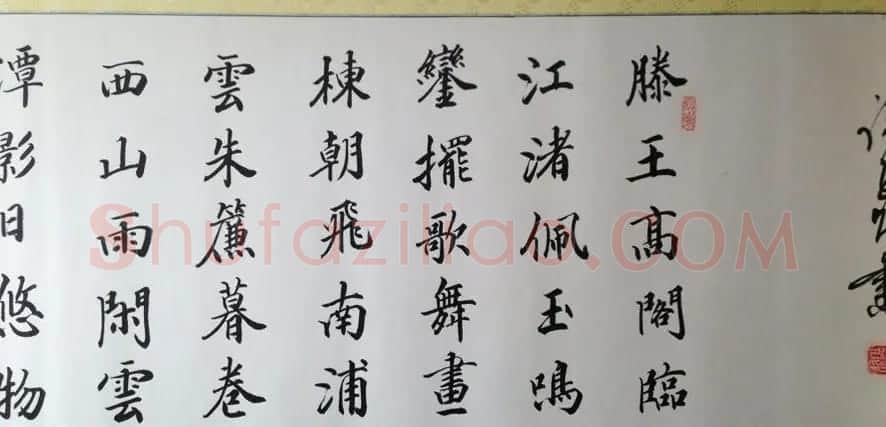 滕王高閣臨
江渚佩玉鳴
鑾擺歌舞畫
棟朝飛南浦
雲朱簾暮卷
西山雨閑雲
潭影日悠物
Shufaziliao.COM